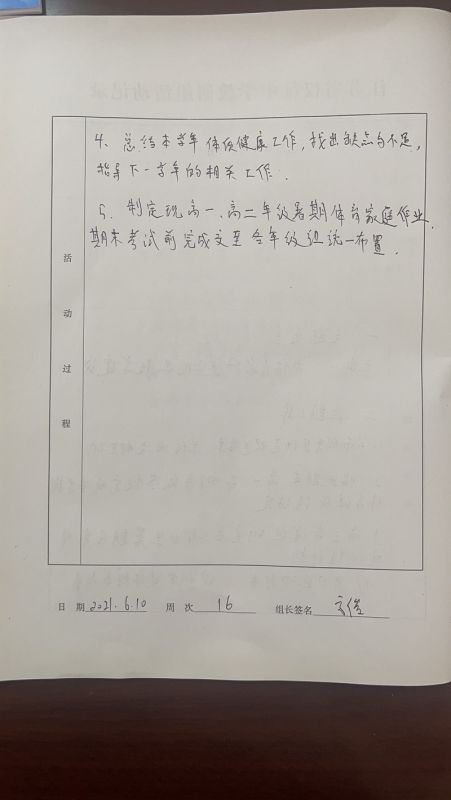 4、总结本学年体质健康工作，找出缺点与不足，
指导下一学年的相关工作.
5、制定现高一、高二年级暑期体育家庭作业，
期末考试前完成交至各年级组统一布置.
活
动
过
程
日 期 2021.6.10 周 次 16 组长签名